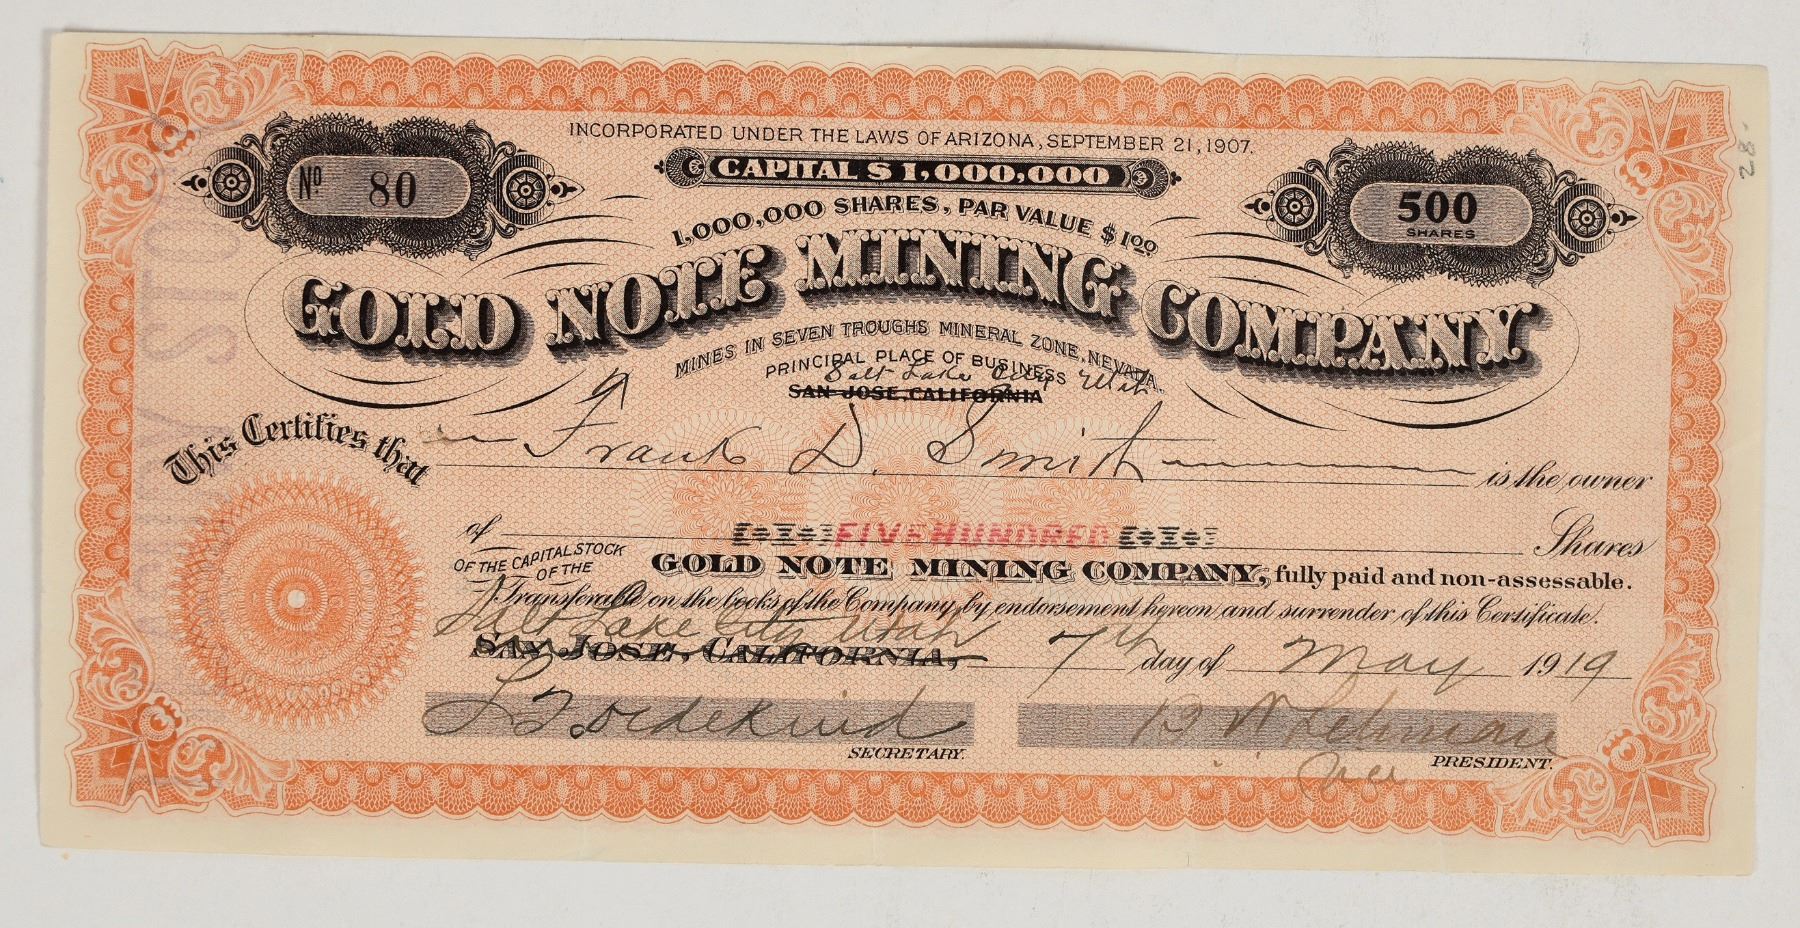 INCORPORATED UNDER THE LAWS OF ARIZONA, SEPTEMBER 21, 1907.
CAPITAL $1,000,000
No 80
500
SHARES
1,000,000 SHARES, PAR VALUE $1.00
GOLD NOTE MINING COMPANY
MINES IN SEVEN TROUGHS MINERAL ZONE, NEVADA.
PRINCIPAL PLACE OF BUSINESS
Salt Lake City Utah
SAN JOSE, CALIFORNIA
This Certifies that Frank D. Smith is the owner
of FIVE HUNDRED Shares
OF THE CAPITAL STOCK
OF THE
GOLD NOTE MINING COMPANY, fully paid and non-assessable.
Transferable on the books of the Company, by endorsement hereon and surrender of this Certificate.
Salt Lake City Utah
SAN JOSE, CALIFORNIA, 7th day of May 1919
B W Lehman
SECRETARY.
Vice PRESIDENT.
28-